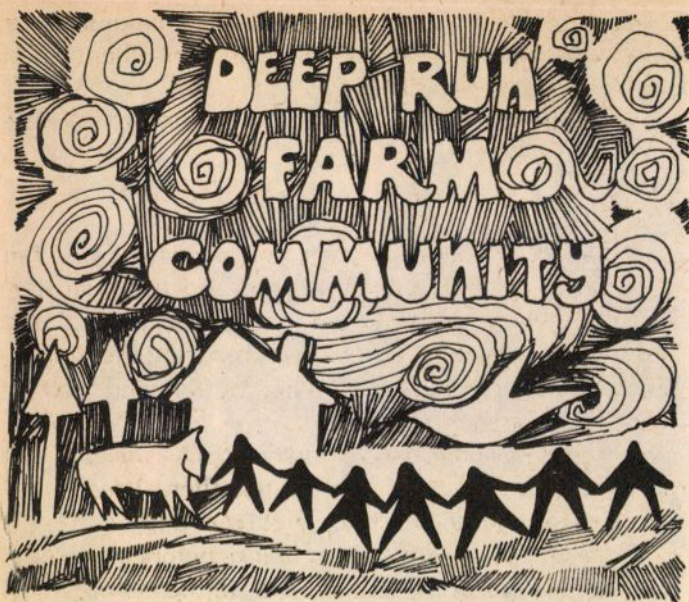 DEEP RUN
FARM
COMMUNITY